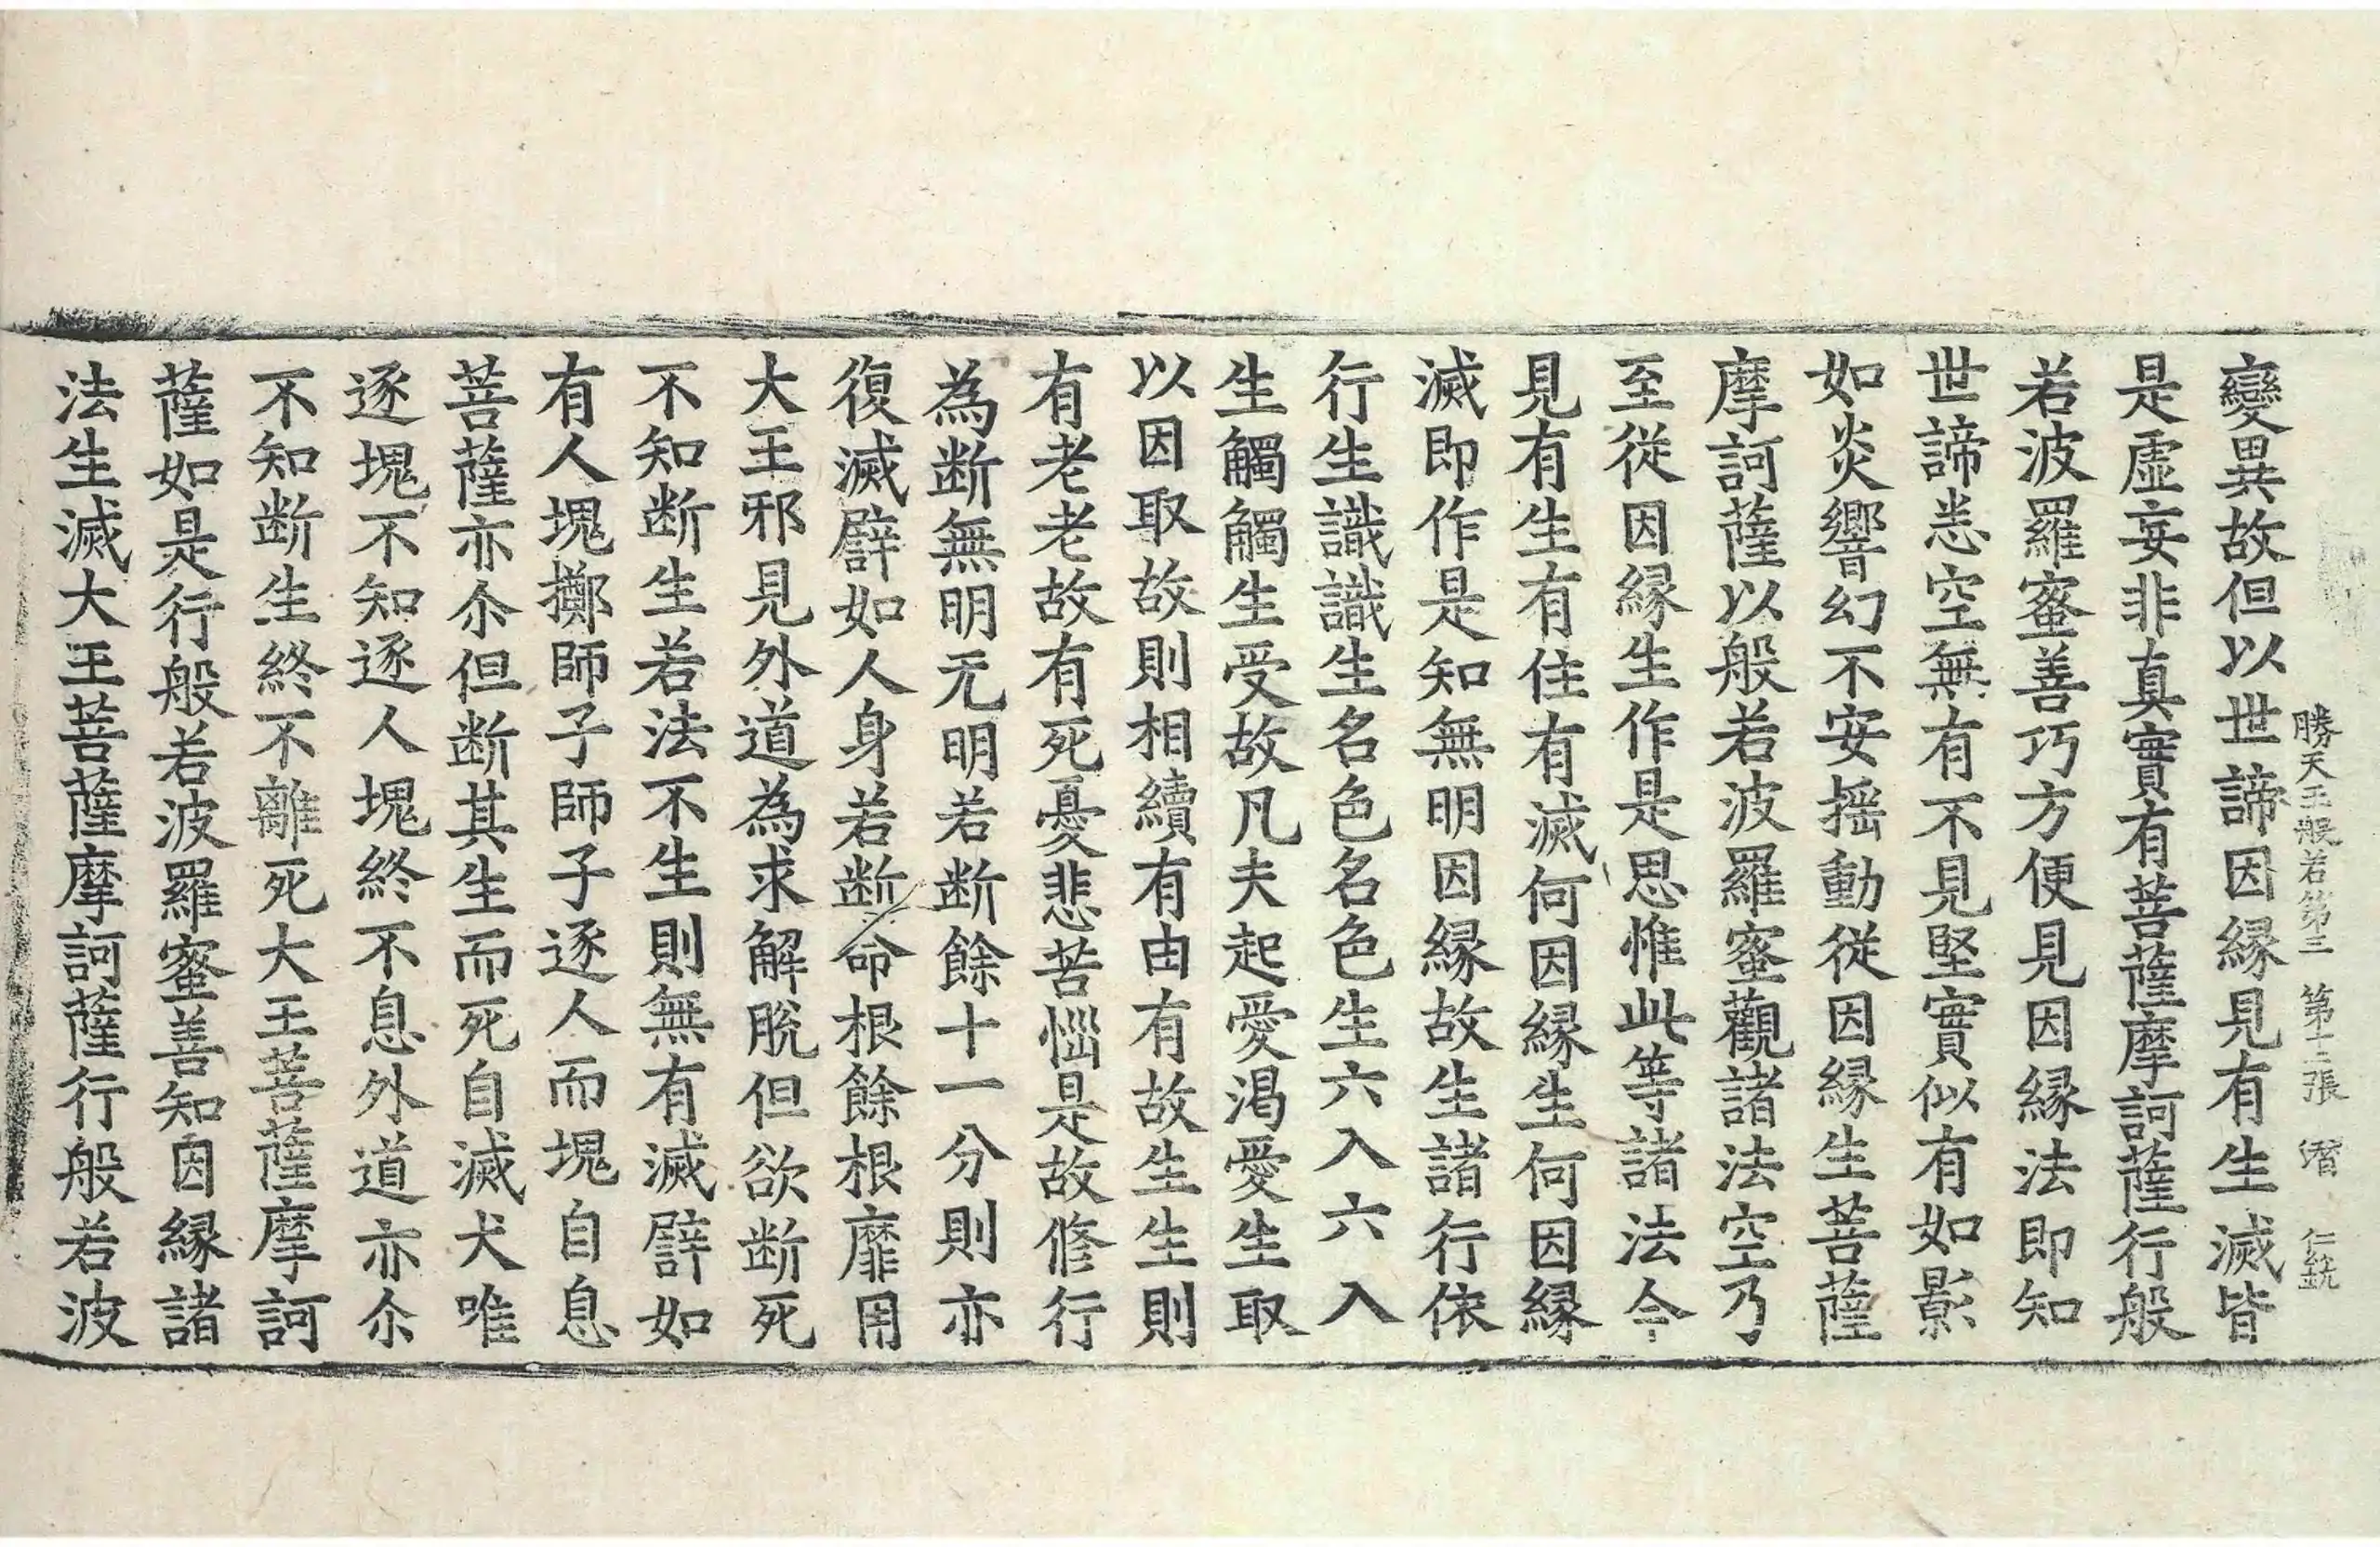 勝天王般若第三 第十二張 潛 仁銃
變異故但以世諦因縁見有生滅皆
是虛妄非真實有菩薩摩訶薩行般
若波羅蜜善巧方便見因縁法即知
世諦悉空無有不見堅實似有如影
如炎響幻不安揺動從因縁生菩薩
摩訶薩以般若波羅蜜觀諸法空乃
至從因縁生作是思惟此等諸法令
見有生有住有滅何因縁生何因縁
滅即作是知無明因縁故生諸行依
行生識識生名色名色生六入六入
生觸觸生受受故凡夫起愛渴愛生取
以因取故則相續有由有故生生則
有老老故有死憂悲苦惱是故修行
為断無明无明若断餘十一分則亦
復滅譬如人身若断命根餘根靡用
大王邪見外道為求解脫但欲断死
不知断生若法不生則無有滅譬如
有人塊擲師子師子逐人而塊自息
菩薩亦尒但断其生而死自滅犬唯
逐塊不知逐人塊終不息外道亦尒
不知断生終不離死大王菩薩摩訶
薩如是行般若波羅蜜善知因縁諸
法生滅大王菩薩摩訶薩行般若波